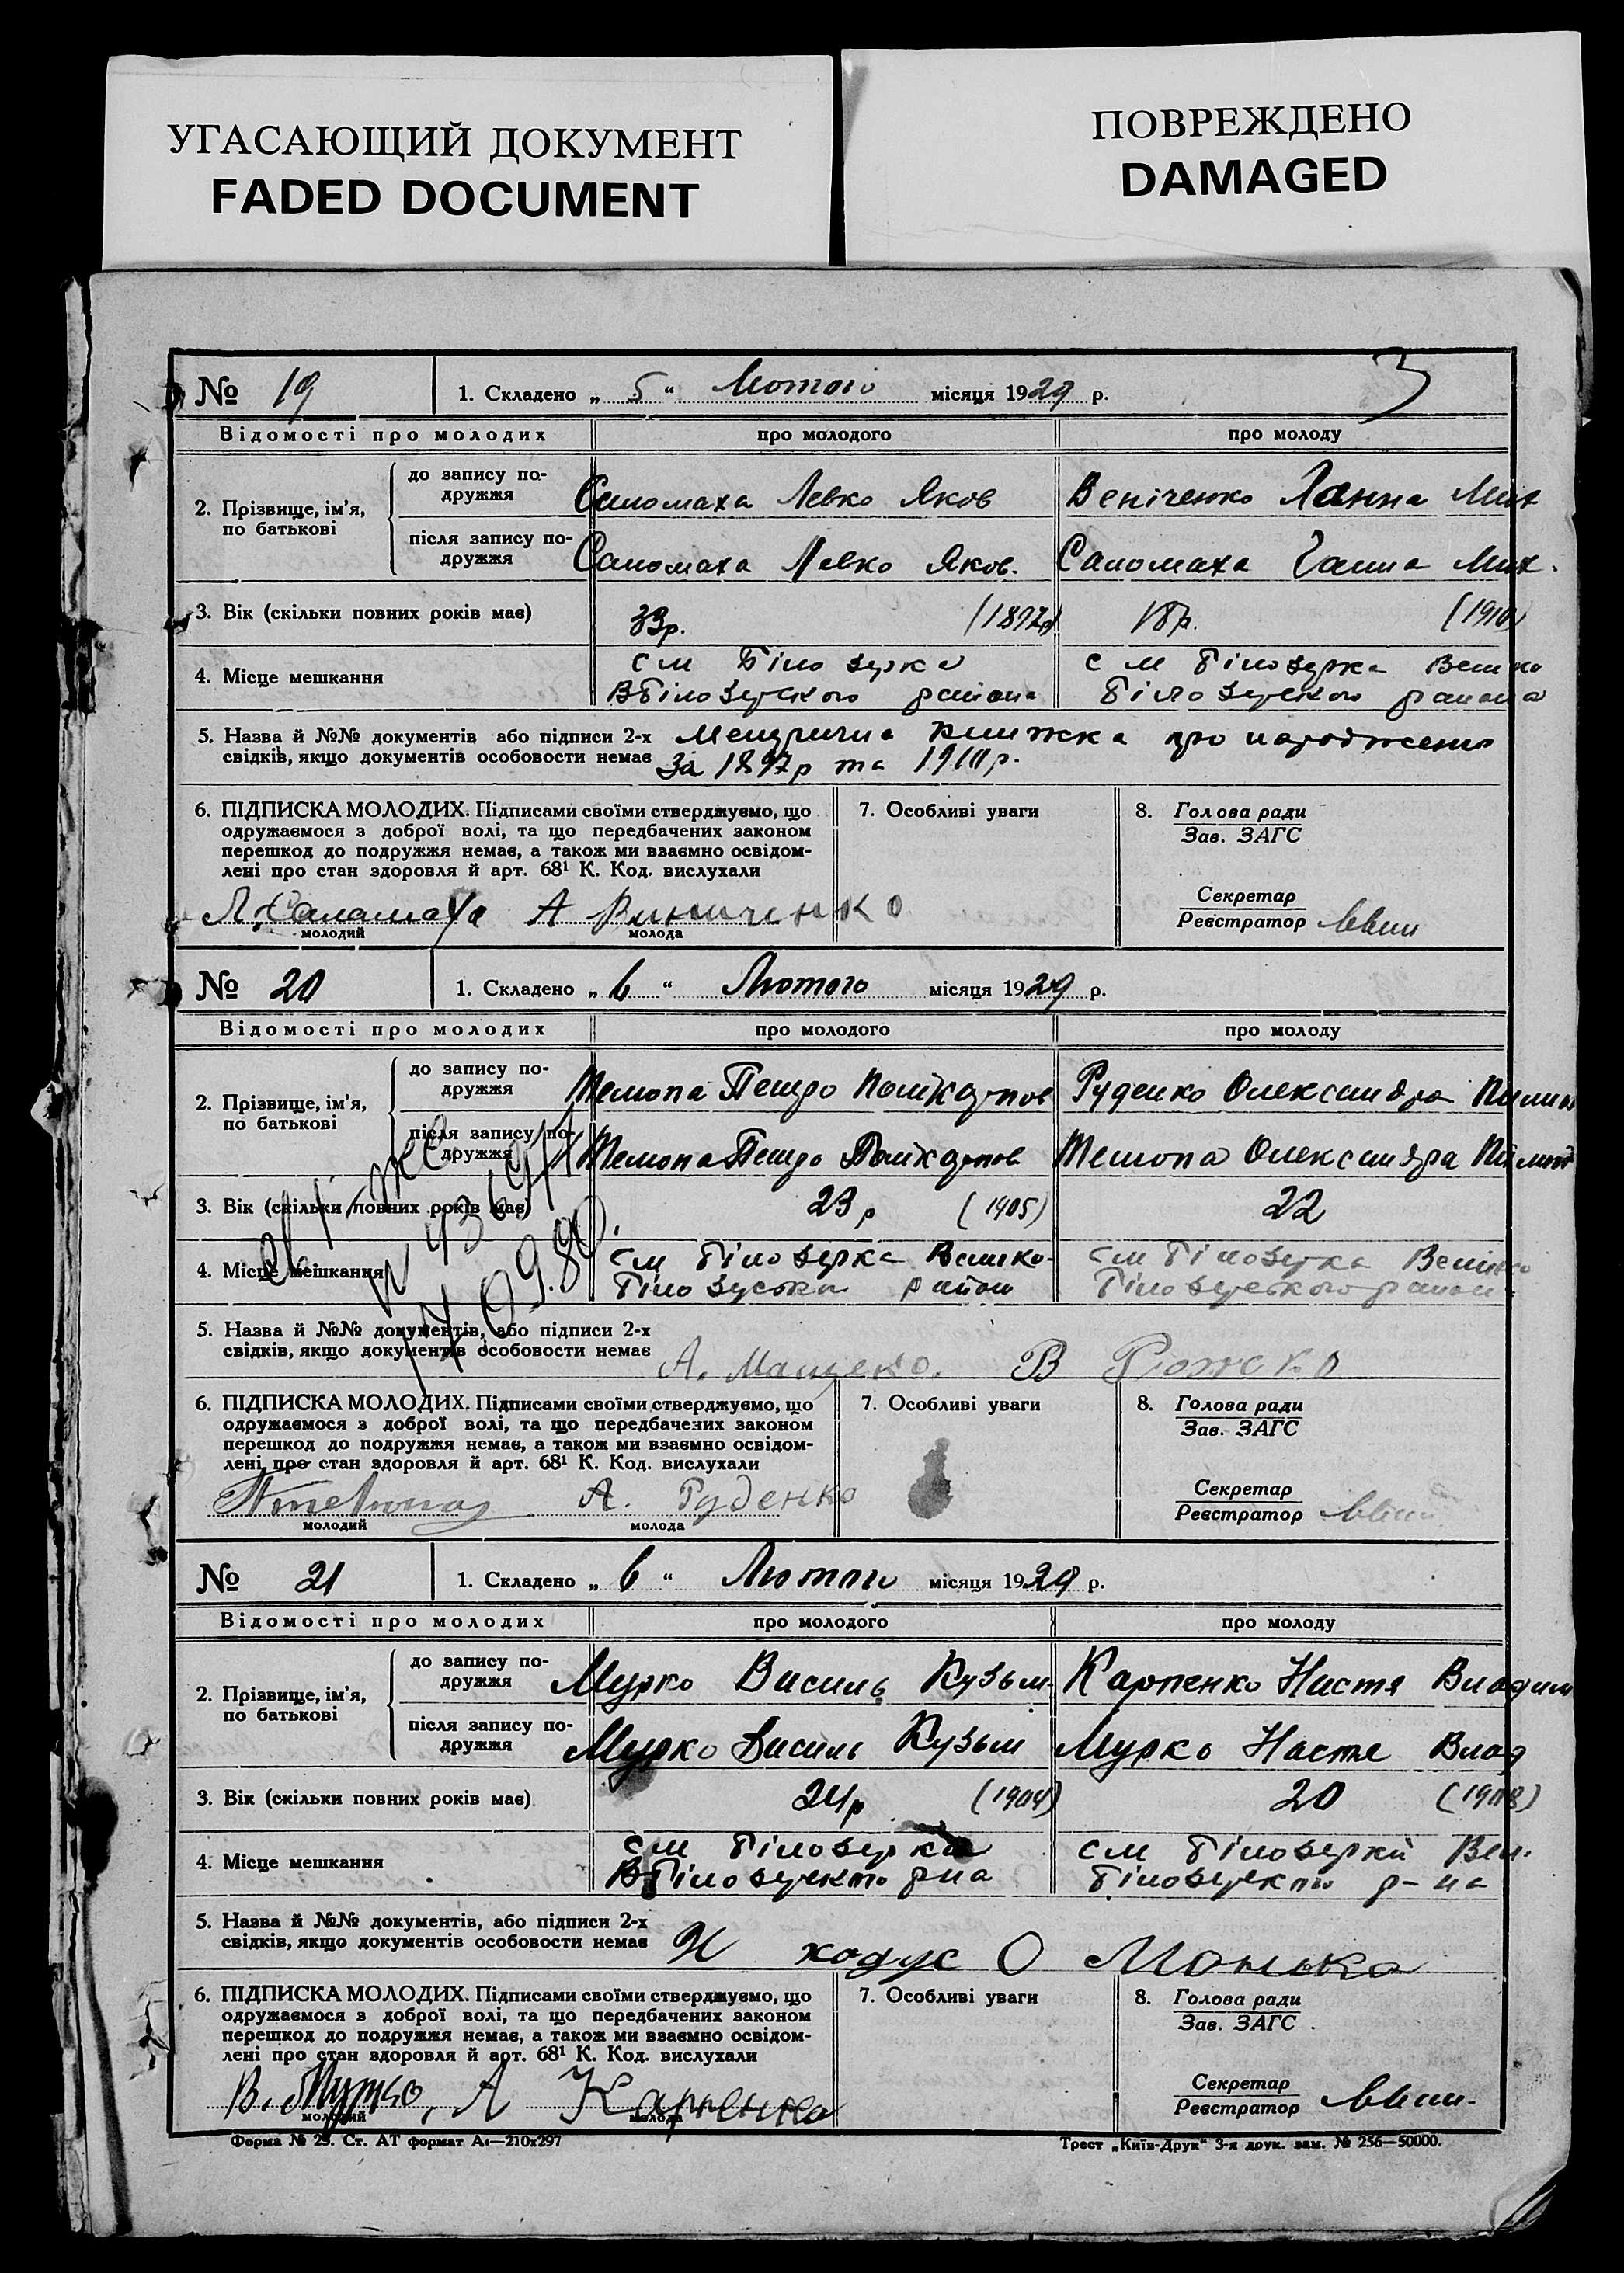 УГАСАЮЩИЙ ДОКУМЕНТ
FADED DOCUMENT
ПОВРЕЖДЕНО
DAMAGED
3
№ 19 1. Складено „ 5 “ Лютого місяця 1929 р.
Відомості про молодих про молодого про молоду
2. Прізвище, ім'я, по батькові
до запису по-
дружжя
Саломаха Левко Яков Веніченко Ганна Мих
після запису по-
дружжя
Саломаха Левко Яков. Саломаха Ганна Мих.
3. Вік (скільки повних років має) 33р. (1897р) 18р. (1910)
4. Місце мешкання
см Білозерка см Білозерка Велико
ВБілозерского района Білозерского района
5. Назва й №№ документів або підписи 2-х Метрична книжка про народження
свідків, якщо документів особовости немає за 1897р та 1910р.
6. ПІДПИСКА МОЛОДИХ. Підписами своїми стверджуємо, що
одружаємося з доброї волі, та що передбачених законом
перешкод до подружжя немає, а також ми взаємно освідом-
лені про стан здоровля й арт. 68¹ К. Код. вислухали
Л. Саламаха А Виниченко
молодий молода
7. Особливі уваги
8. Голова ради
Зав. ЗАГС
Секретар
Реєстратор
№ 20 1. Складено „ 6 “ Лютого місяця 1929 р.
Відомості про молодих про молодого про молоду
2. Прізвище, ім'я, по батькові
до запису по-
дружжя
Петро Руденко Олександра
після запису по-
дружжя
Петро Олександра
3. Вік (скільки повних років має) 23р (1905) 22
4. Місце мешкання
см Білозерка Велико- см Білозерка Велико
Білозерськ район Білозерського район
5. Назва й №№ документів, або підписи 2-х
свідків, якщо документів особовости немає А. В Рожко
6. ПІДПИСКА МОЛОДИХ. Підписами своїми стверджуємо, що
одружаємося з доброї волі, та що передбачених законом
перешкод до подружжя немає, а також ми взаємно освідом-
лені про стан здоровля й арт. 68¹ К. Код. вислухали
А. Руденко
молодий молода
7. Особливі уваги
8. Голова ради
Зав. ЗАГС
Секретар
Реєстратор
№ 21 1. Складено „ 6 “ Лютого місяця 1929 р.
Відомості про молодих про молодого про молоду
2. Прізвище, ім'я, по батькові
до запису по-
дружжя
Мурко Василь Кузьм. Карпенко Настя Владим
після запису по-
дружжя
Мурко Василь Кузьм Мурко Настя Влад
3. Вік (скільки повних років має) 24р (1904) 20 (1908)
4. Місце мешкання
см Білозерка см Білозерки Вел.
ВБілозерского рна Білозерского р-на
5. Назва й №№ документів, або підписи 2-х
свідків, якщо документів особовости немає Н ходус О Монько
6. ПІДПИСКА МОЛОДИХ. Підписами своїми стверджуємо, що
одружаємося з доброї волі, та що передбачених законом
перешкод до подружжя немає, а також ми взаємно освідом-
лені про стан здоровля й арт. 68¹ К. Код. вислухали
В. Мурко, А Карпенко
молодий молода
7. Особливі уваги
8. Голова ради
Зав. ЗАГС
Секретар
Реєстратор
Форма № 23. Ст. АТ формат А₄—210х297 Трест „Київ-Друк“ 3-я друк. зам. № 256—50000.